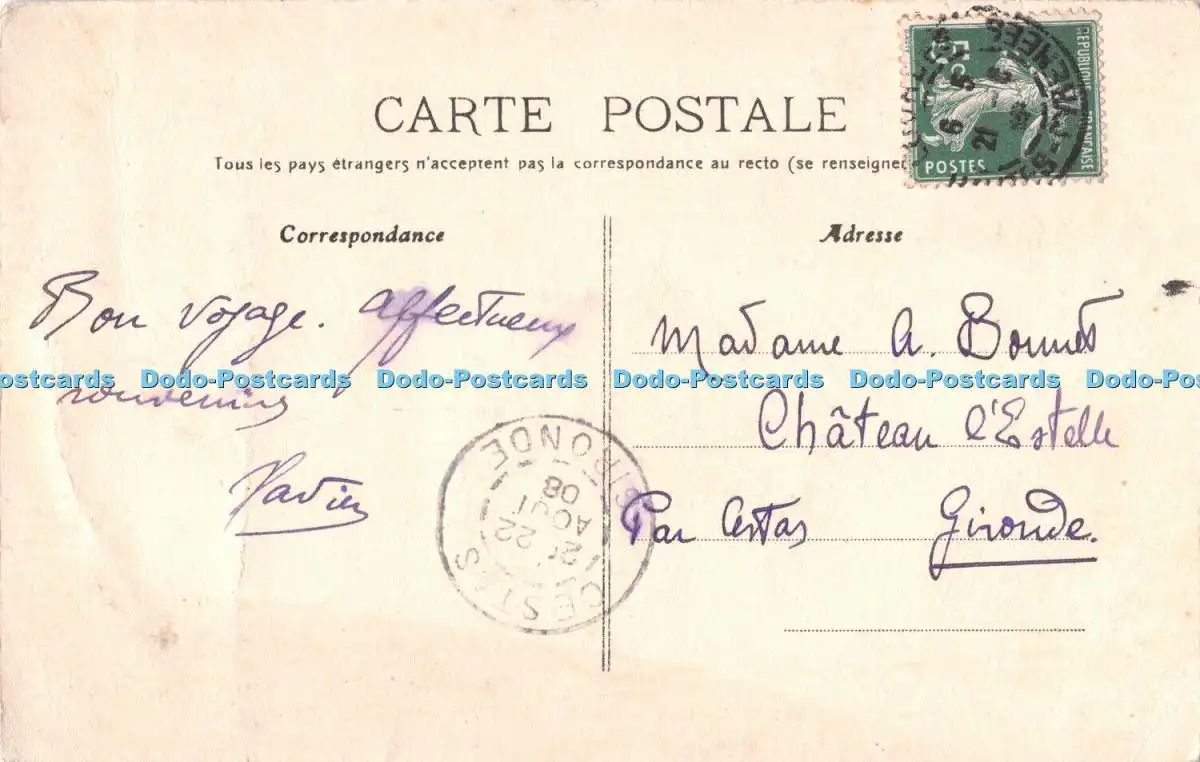 CARTE POSTALE
Tous les pays étrangers n'acceptent pas la correspondance au recto (se renseigne
RÉPUBLIQUE FRANÇAISE
5c
POSTES
21
Correspondance
Adresse
Bon voyage. Affectueux
souvenirs
Madame A. Bonnet
Château l'Estelle
Par Cestas Gironde.
CESTAS
GIRONDE
22
AOUT
08
Dodo-Postcards Dodo-Postcards Dodo-Postcards Dodo-Postcards Dodo-Postcards Dodo-Postcards